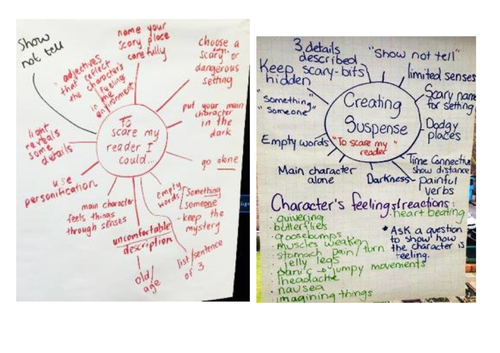 Show
not tell
name your
scary place
carefully
choose a
scary or
dangerous
setting
adjectives
that reflect
the character's
in the
environment
put your main
character
in the
dark
To
scare my
reader I
could...
light
reveals
some
details
go alone
use
personification
main character
feels things
through senses
empty
words
Something
Someone
- keep the
mystery
uncomfortable
description
old/
age
list/sentence
of 3
3 details
described
"Show not tell"
Keep scary-bits
hidden
limited senses
"Something"
"Someone"
Scary name
for setting
Creating
Suspense
"To scare my
reader"
Dodgy
places
Empty words
Time Connective
show distance
Main character
alone
Darkness
Painful
verbs
Character's feelings/reactions:
- quivering
- butterflies
- goosebumps
- muscles weaken
- stomach pain/turn
- jelly legs
- panic → jumpy movements
- headache
- nausea
- imagining things
heart beating
* Ask a
question to
show how
the character is
feeling.